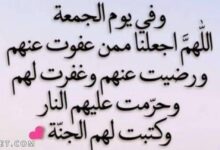 وفي يوم الجمعة
اللهمَّ اجعلنا ممن عفوت عنهم
ورضيت عنهم وغفرت لهم
وحرّمت عليهم النار
وكتبت لهم الجنّة